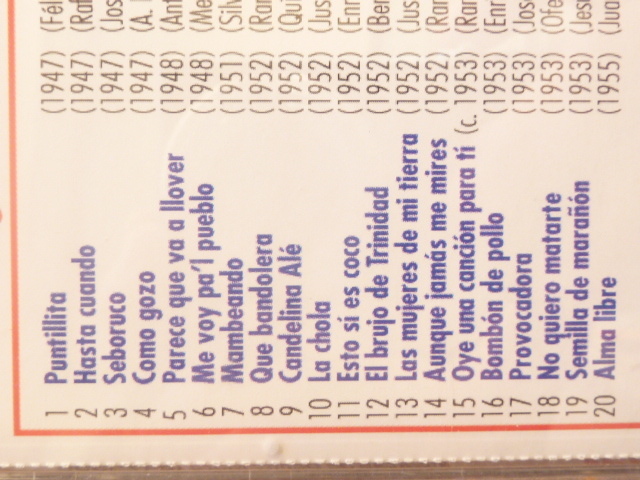 1 Puntillita (1947) (Fél
2 Hasta cuando (1947) (Raf
3 Seboruco (1947) (Jos
4 Como gozo (1947) (A.
5 Parece que va a llover (1948) (Ant
6 Me voy pa'l pueblo (1948) (Me
7 Mambeando (1951) (Silv
8 Que bandolera (1952) (Ran
9 Candelina Alé (1952) (Qui
10 La chola (1952) (Jus
11 Esto sí es coco (1952) (Enr
12 El brujo de Trinidad (1952) (Ber
13 Las mujeres de mi tierra (1952) (Jus
14 Aunque jamás me mires (1952) (Ran
15 Oye una canción para tí (c. 1953) (Ran
16 Bombón de pollo (1953) (Enr
17 Provocadora (1953) (José
18 No quiero matarte (1953) (Ofe
19 Semilla de marañón (1953) (Jesú
20 Alma libre (1955) (Jua